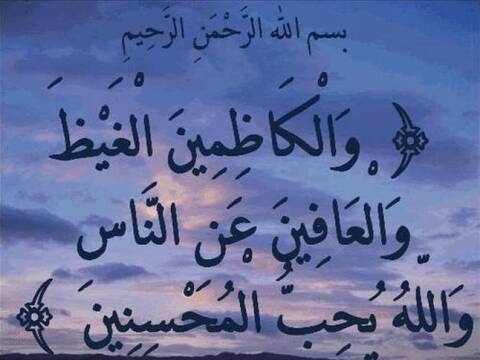 بسم الله الرَّحْمَنِ الرَّحِيمِ
﴿ وَالْكَاظِمِينَ الْغَيْظَ
وَالْعَافِينَ عَنِ النَّاسِ
وَاللَّهُ يُحِبُّ الْمُحْسِنِينَ ﴾